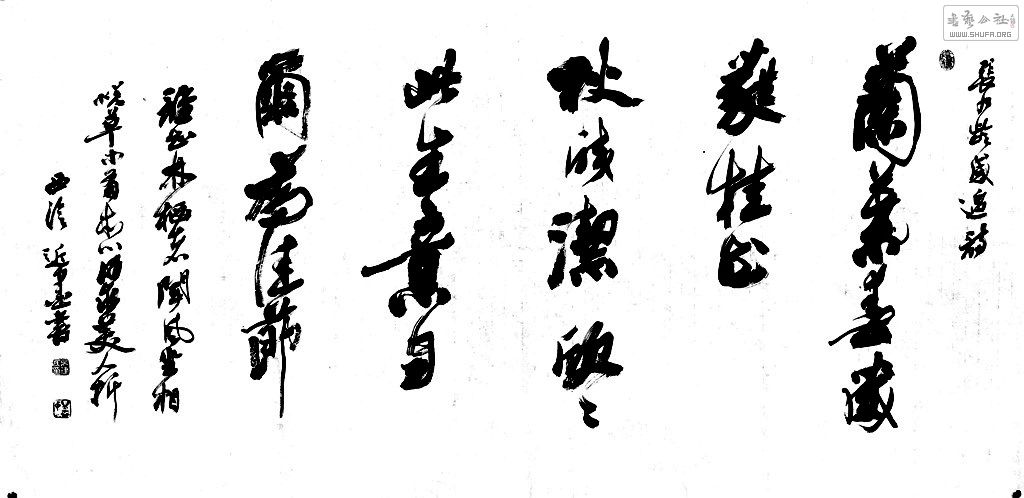 書藝公社
WWW.SHUFA.ORG
張九齡感遇詩
蘭葉春葳
蕤桂華
秋皎潔欣々
此生意自
爾為佳節
誰知林栖者聞風坐相
悦草木有本心何求美人折
西泠